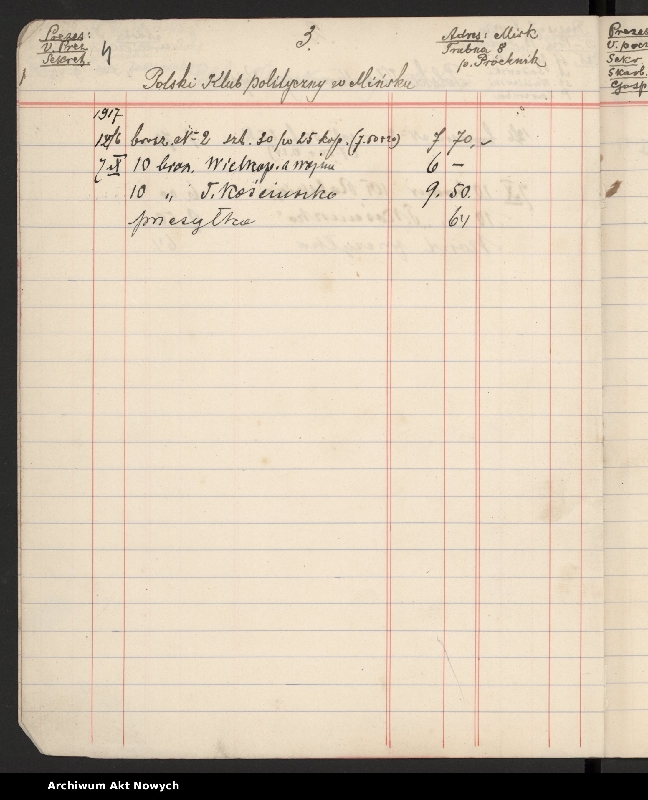 Prezes:
V. Prez
Sekret.
4
3.
Adres: Mińsk
Trubna 8
p. Próchnik
Polski Klub polityczny w Mińsku
1917
12/6 brosz. № 2 szt. 30 po 25 kop. 7 70.–
7 IX 10 bron. Wielkop. a wojna 6 –
10 „ T. Kościuszko 9. 50.
przesyłka 64
Prezes
V.
Sekr
Skarb.
Gosp
Archiwum Akt Nowych